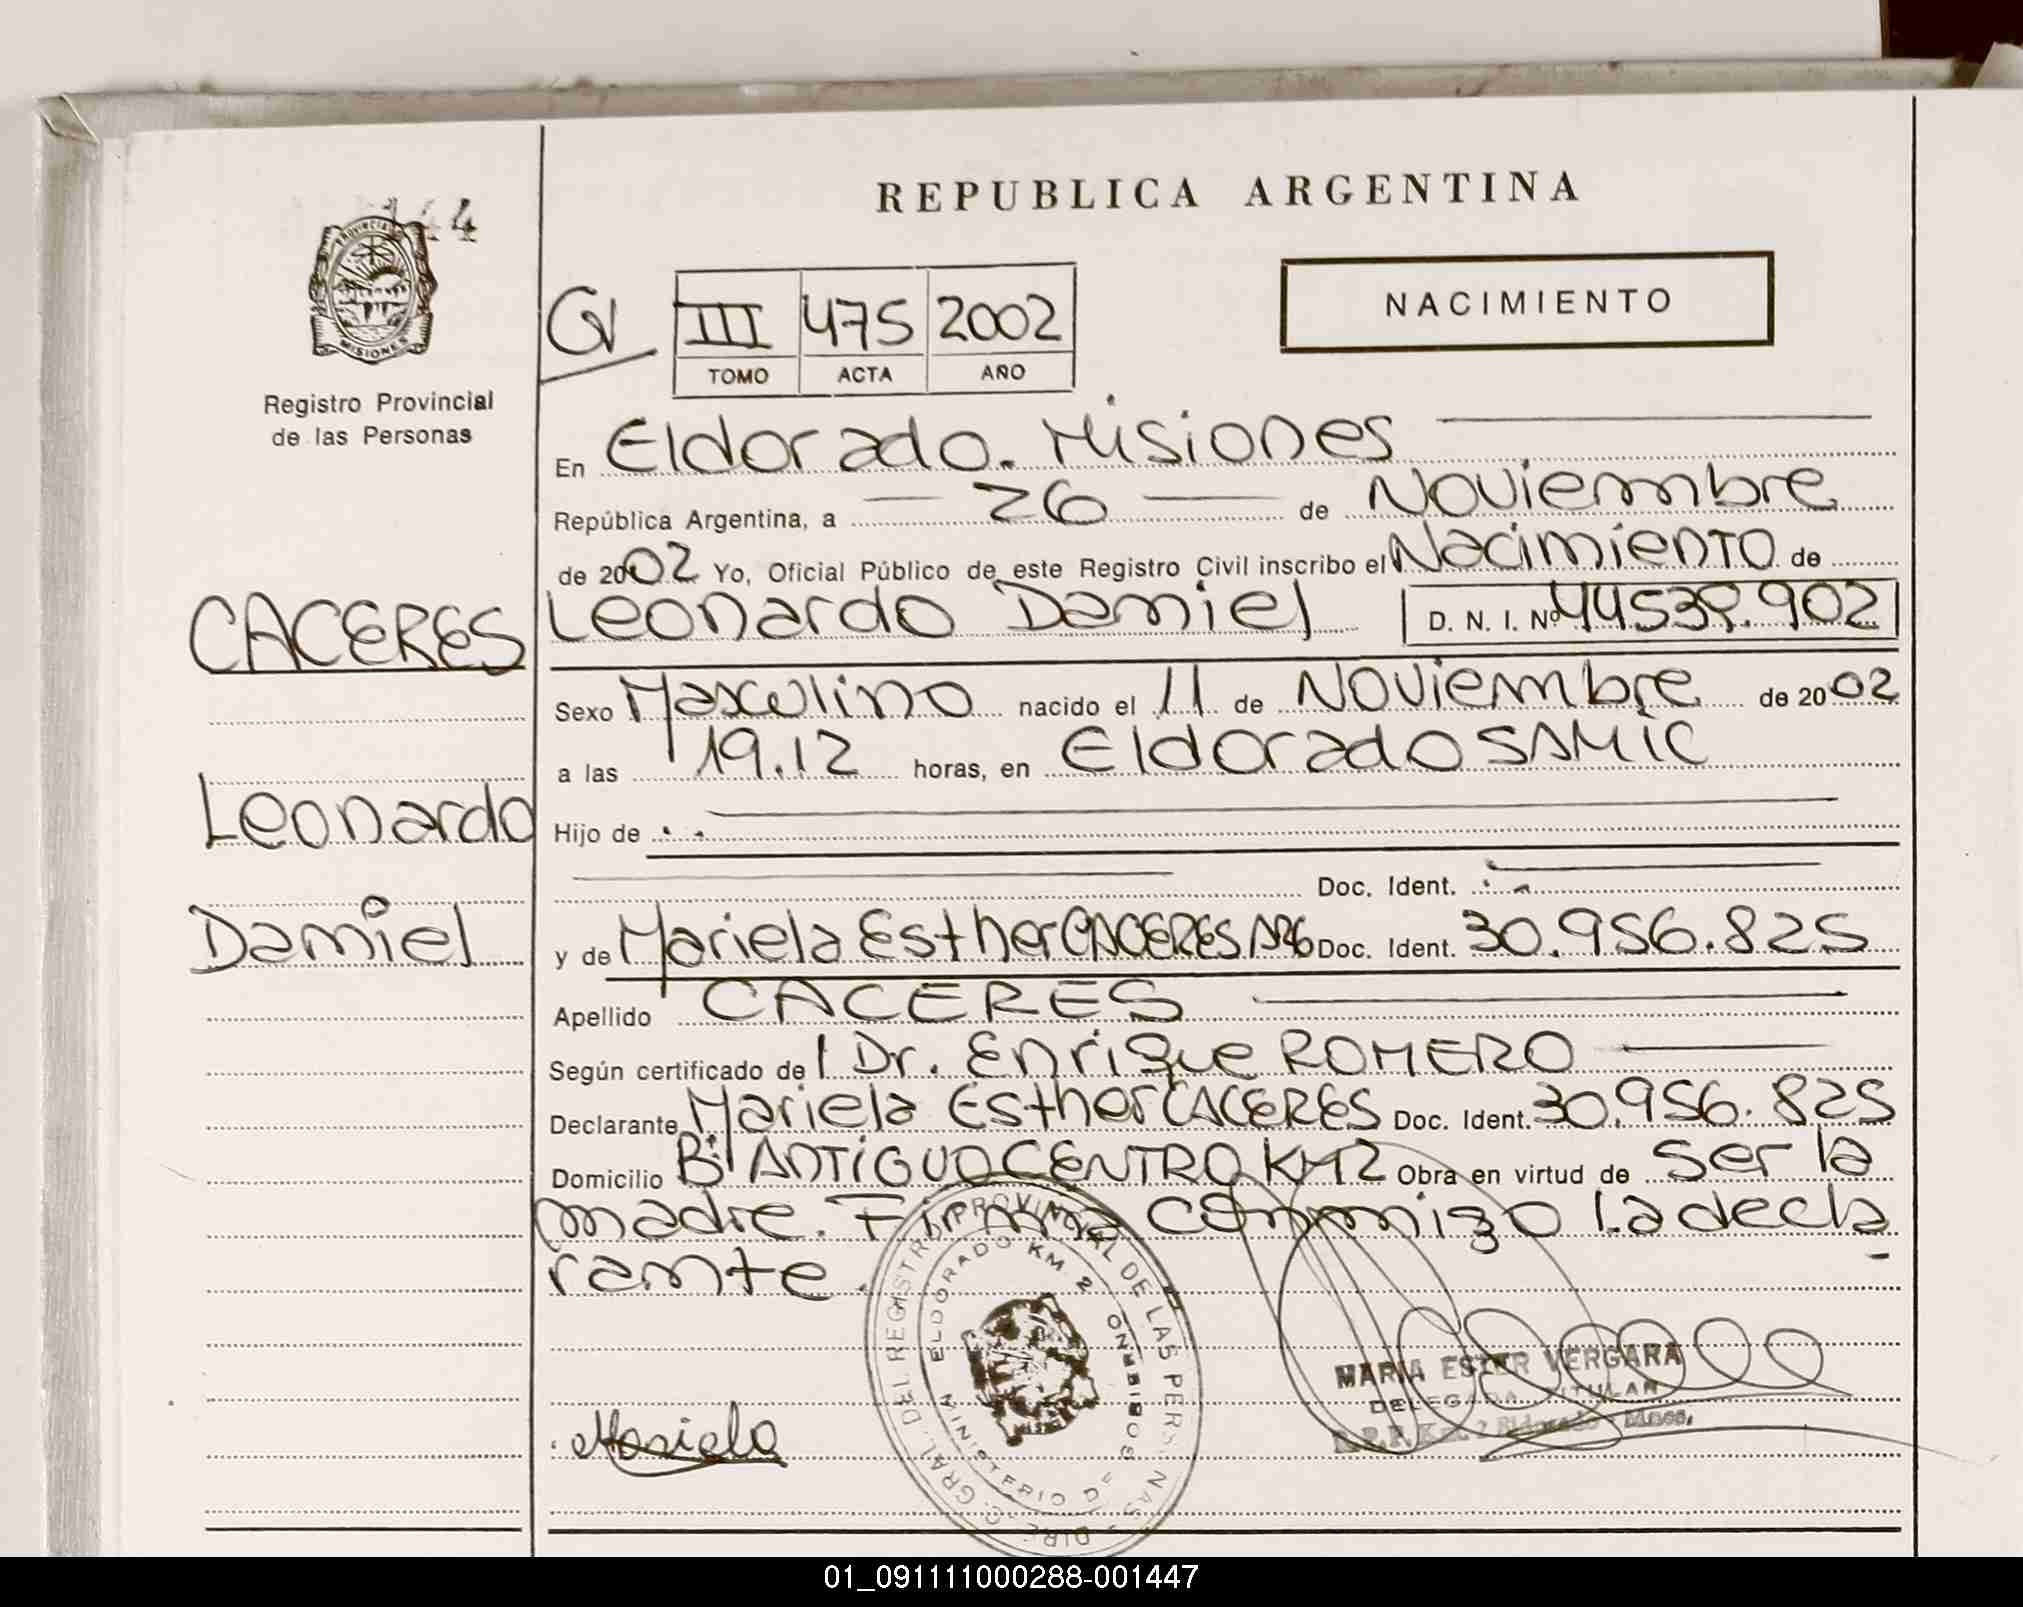 144
PROVINCIA
MISIONES
Registro Provincial
de las Personas
REPUBLICA ARGENTINA
NACIMIENTO
III 475 2002
TOMO ACTA AÑO
En Eldorado. Misiones
República Argentina, a 26 de Noviembre
de 2002 Yo, Oficial Público de este Registro Civil inscribo el Nacimiento de
CACERES
Leonardo Daniel D. N. I. Nº 44.539.902
Sexo Masculino nacido el 11 de Noviembre de 2002
a las 19.12 horas, en Eldorado SAMIC
Leonardo
Hijo de
Doc. Ident.
Daniel
y de Mariela Esther CACERES ARG Doc. Ident. 30.956.825
Apellido CACERES
Según certificado del Dr. Enrique ROMERO
Declarante Mariela Esther CACERES Doc. Ident. 30.956.825
Domicilio Bº ANTIGUO CENTRO KM 2 Obra en virtud de ser la
madre. Firma conmigo la decla
rante.
DIREC. GRAL. DEL REGISTRO PROVINCIAL DE LAS PERSONAS
ELDORADO KM. 2
MINISTERIO DE GOBIERNO
Mariela
MARIA ESTER VERGARA
DELEGADA TITULAR
R.P.P. Km. 2 Eldorado - Mnes.
01_091111000288-001447